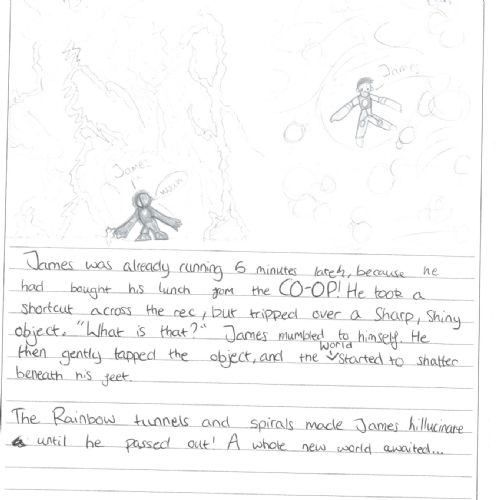 James
James
James was already running 5 minutes late, because he
had bought his lunch from the CO-OP! He took a
shortcut across the rec, but tripped over a Sharp, Shiny
object. "What is that?" James mumbled to himself. He
then gently tapped the object, and the world started to shatter
beneath his feet.
The Rainbow tunnels and spirals made James hillucinate
until he passed out! A whole new world awaited...